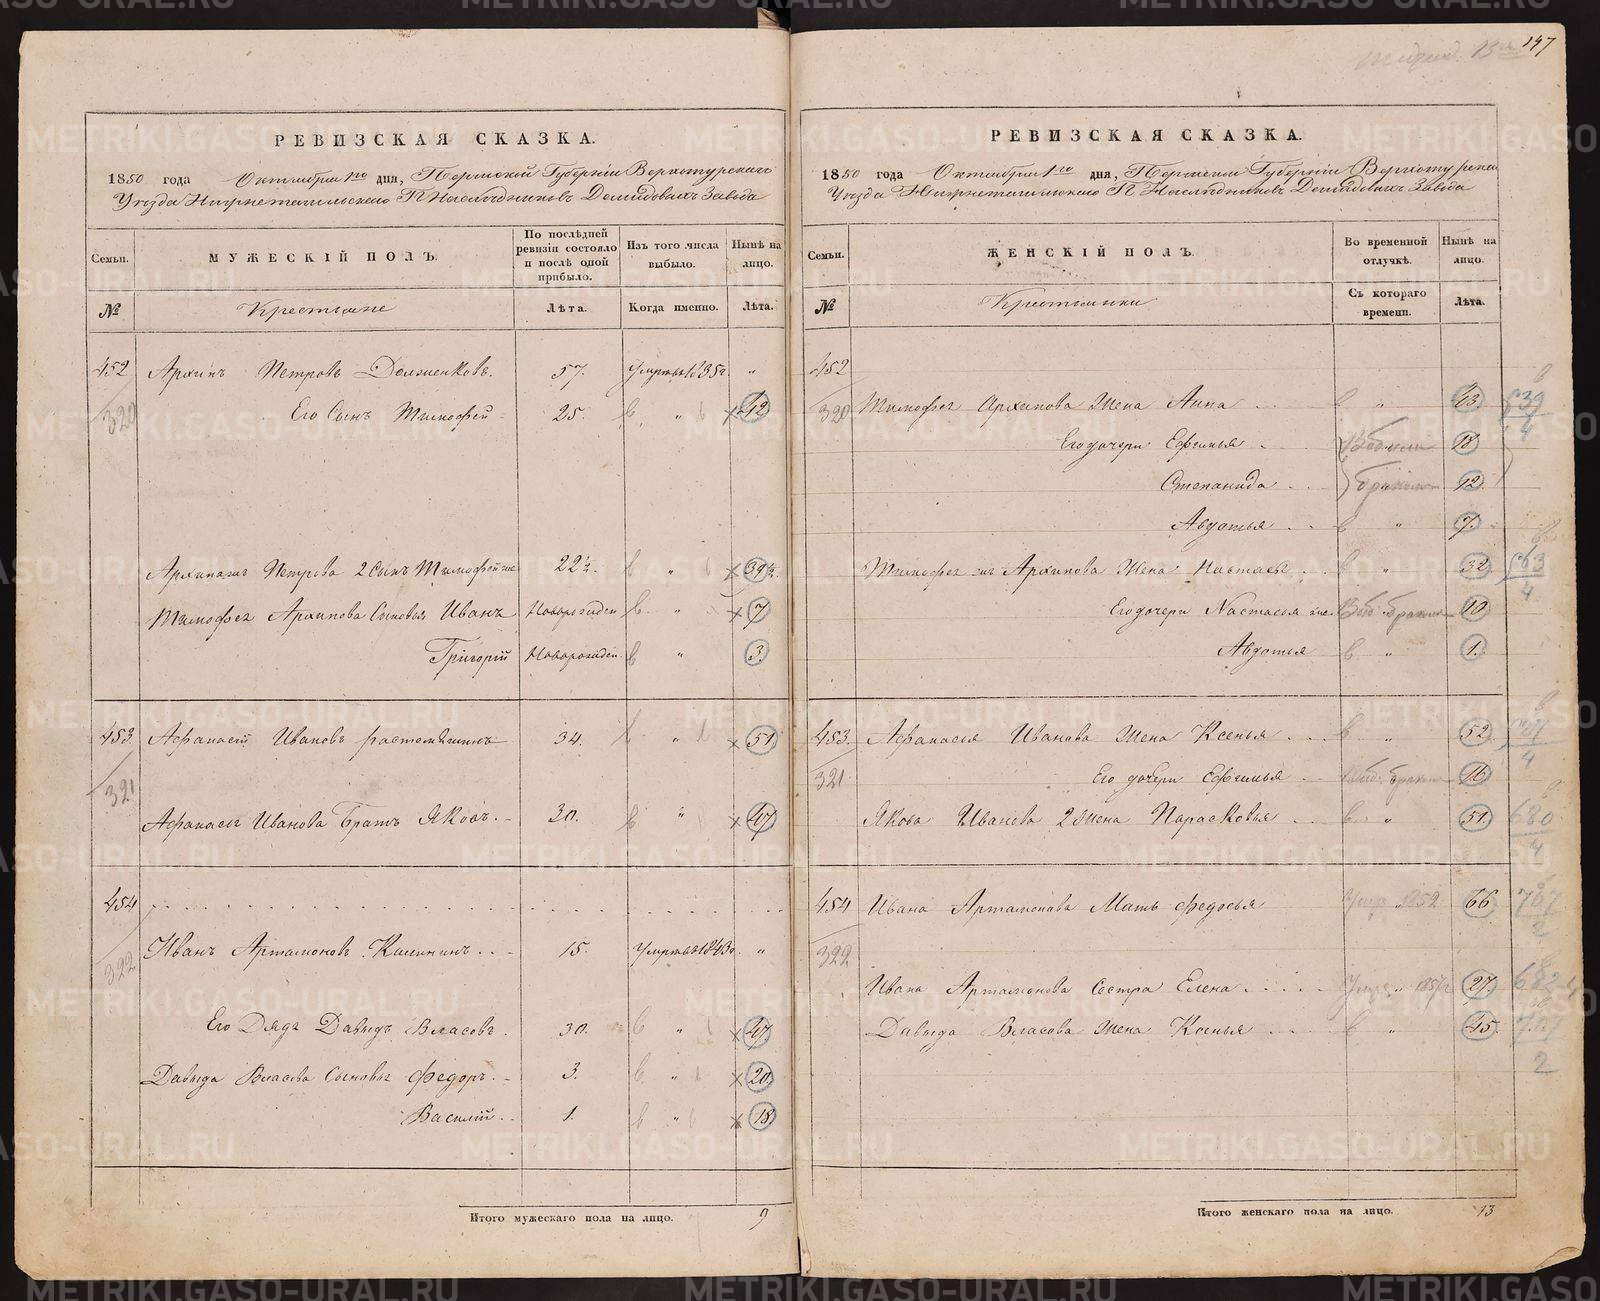 147
РЕВИЗСКАЯ СКАЗКА.
1850 года Октября 1го дня, Пермской Губерніи Верхотурскаго
Уезда Нижнетагильскаго Г. Наследниковъ Демидовыхъ Завода
Семьи.
МУЖЕСКІЙ ПОЛЪ.
По послѣдней ревизіи состояло и послѣ оной прибыло.
Изъ того числа выбыло.
Нынѣ на лицо.
№
Крестьяне
Лѣта.
Когда именно.
Лѣта.
452 Архипъ Петровъ Долженковъ. 57. Умръ въ 1835г. "
320 Его Сынъ Тимофей 25. " 42
Архипа Петрова 2 Сынъ Тимофей же 22½. " 39½
Тимофея Архипова Сыновья Иванъ Новорожден " 7
Григорій Новорожден. " 3.
453. Афанасій Ивановъ 34. " 51
321
Афанасья Иванова Братъ Яковъ. 30. " 47
454
322 Иванъ Артамоновъ 15. Умръ въ 1843г. "
Его Дядя Давыдъ Власовъ. 30. " 47.
Давыда Власова Сыновья Федоръ. 3. " 20.
Василій. 1. " 18
Итого мужескаго пола на лицо. 9
РЕВИЗСКАЯ СКАЗКА.
1850 года Октября 1го дня, Пермской Губерніи Верхотурска
Уезда Нижнетагильскаго Г. Наследниковъ Демидовыхъ Завода
Семьи.
ЖЕНСКІЙ ПОЛЪ.
Во временной отлучкѣ.
Нынѣ на лицо.
№
Крестьянки
Съ котораго времени.
Лѣта.
452
320 Тимофея Архипова Жена Анна " 43 639
4
Его дочери Ефимья 18
Степанида 12
Авдотья " 7.
Тимофея же Архипова Жена Настасья " 32 663
4
Его дочери Настасья же 10
Авдотья " 1.
453. Афанасья Иванова Жена Ксенья " 52
4
321 Его дочери Ефимья 16
Якова Иванова 2 жена Парасковья " 51. 680
4
454 Ивана Артамонова Мать Федосья Умр. 1852 66 767
2
322
Ивана Артамонова Сестра Елена Умр. 27 682
Давыда Власова Жена Ксенья " 45.
2
Итого женскаго пола на лицо. 13
METRIKI.GASO-URAL.RU